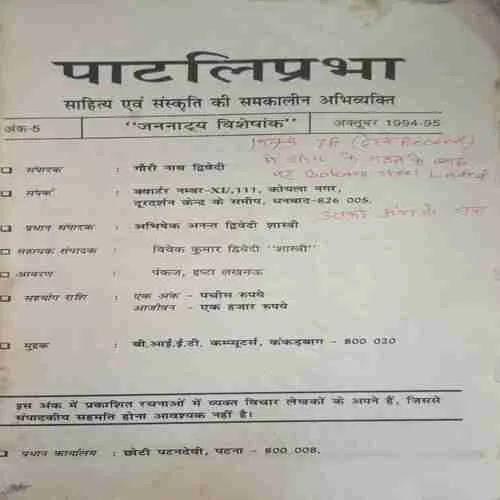 पाटलिप्रभा
साहित्य एवं संस्कृति की समकालीन अभिव्यक्ति
अंक-5 "जननाट्य विशेषांक" अक्तूबर 1994-95
संपादक : गौरी नाथ द्विवेदी
संपर्क : क्वार्टर नम्बर-XI/111, कोयला नगर,
दूरदर्शन केन्द्र के समीप, धनबाद-826 005.
प्रधान संपादक : अभिषेक अनन्त द्विवेदी शास्त्री
सहायक संपादक : विवेक कुमार द्विवेदी "शास्त्री"
आवरण : पंकज, इप्टा लखनऊ
सहयोग राशि : एक अंक - पचीस रुपये
आजीवन - एक हजार रुपये
मुद्रक : बी.आई.ई.टी. कम्प्यूटर्स, कंकड़बाग - 800 020
इस अंक में प्रकाशित रचनाओं में व्यक्त विचार लेखकों के अपने हैं, जिससे
संपादकीय सहमति होना आवश्यक नहीं है।
प्रधान कार्यालय : छोटी पटनदेवी, पटना - 800 008.